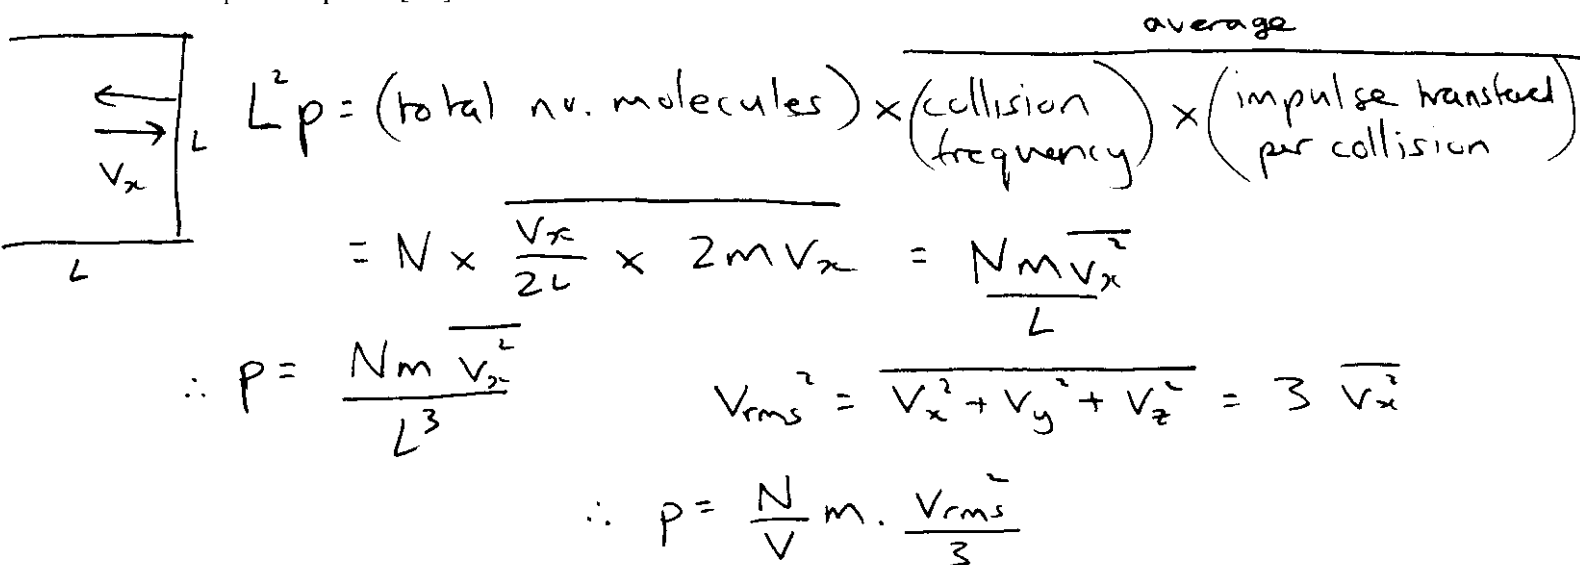 average
L² p = (total no. molecules) × (collision frequency) × (impulse transfered per collision)
L
Vx
L
= N × \overline{\frac{Vx}{2L} × 2mVx} = \frac{Nm\overline{Vx²}}{L}
∴ p = \frac{Nm\overline{Vx²}}{L³}
Vrms² = \overline{Vx² + Vy² + Vz²} = 3\overline{Vx²}
∴ p = \frac{N}{V} m . \frac{Vrms²}{3}